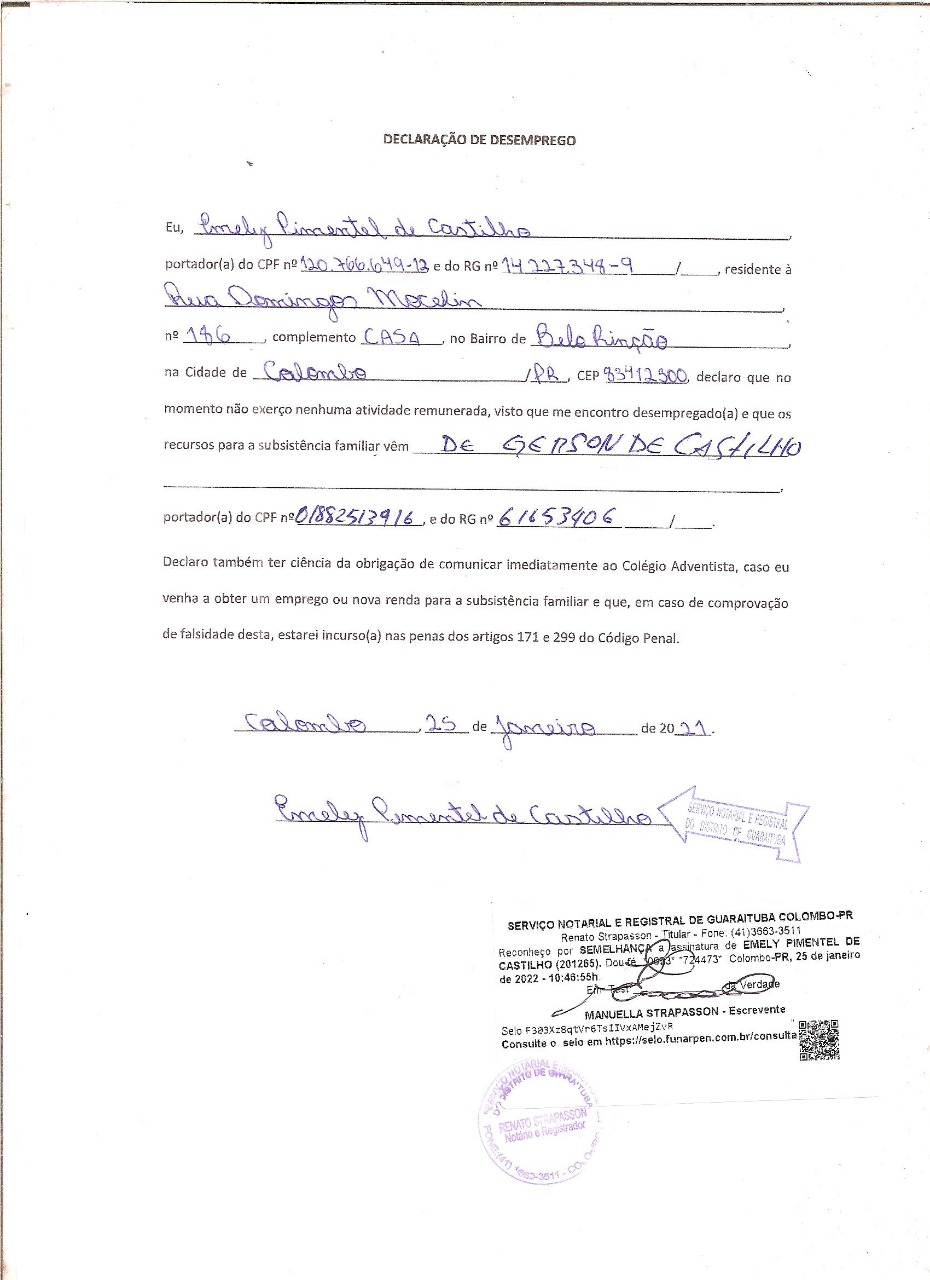 DECLARAÇÃO DE DESEMPREGO
Eu, Emely Pimentel de Castilho,
portador(a) do CPF nº 120.766.649-12 e do RG nº 14 227.348-9 /, residente à
Rua Domingos Mocelin,
nº 186, complemento CASA, no Bairro de Belo Rinção,
na Cidade de Colombo /PR, CEP 83412300, declaro que no
momento não exerço nenhuma atividade remunerada, visto que me encontro desempregado(a) e que os
recursos para a subsistência familiar vêm DE GERSON DE CASTILHO
,
portador(a) do CPF nº 01882513916, e do RG nº 61653406 / .
Declaro também ter ciência da obrigação de comunicar imediatamente ao Colégio Adventista, caso eu
venha a obter um emprego ou nova renda para a subsistência familiar e que, em caso de comprovação
de falsidade desta, estarei incurso(a) nas penas dos artigos 171 e 299 do Código Penal.
Colombo, 25 de Janeiro de 2021.
Emely Pimentel de Castilho
SERVIÇO NOTARIAL E REGISTRAL
DO DISTRITO DE GUARAITUBA
SERVIÇO NOTARIAL E REGISTRAL DE GUARAITUBA COLOMBO-PR
Renato Strapasson - Titular - Fone: (41)3663-3511
Reconheço por SEMELHANÇA a assinatura de EMELY PIMENTEL DE
CASTILHO (201265). Dou fé *724473* Colombo-PR, 25 de janeiro
de 2022 - 10:46:55h.
Em Test da Verdade
MANUELLA STRAPASSON - Escrevente
Selo F303Xz8qtVr6TsIIVxAMejZvR
Consulte o selo em https://selo.funarpen.com.br/consulta
DO DISTRITO DE GUARAITUBA
RENATO STRAPASSON
Notário e Registrador